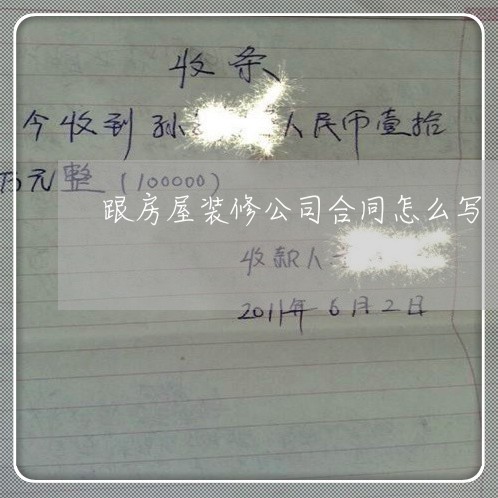 收条
今收到孙 人民币壹拾
万元整(100000)
跟房屋装修公司合同怎么写
收款人
2011年6月2日